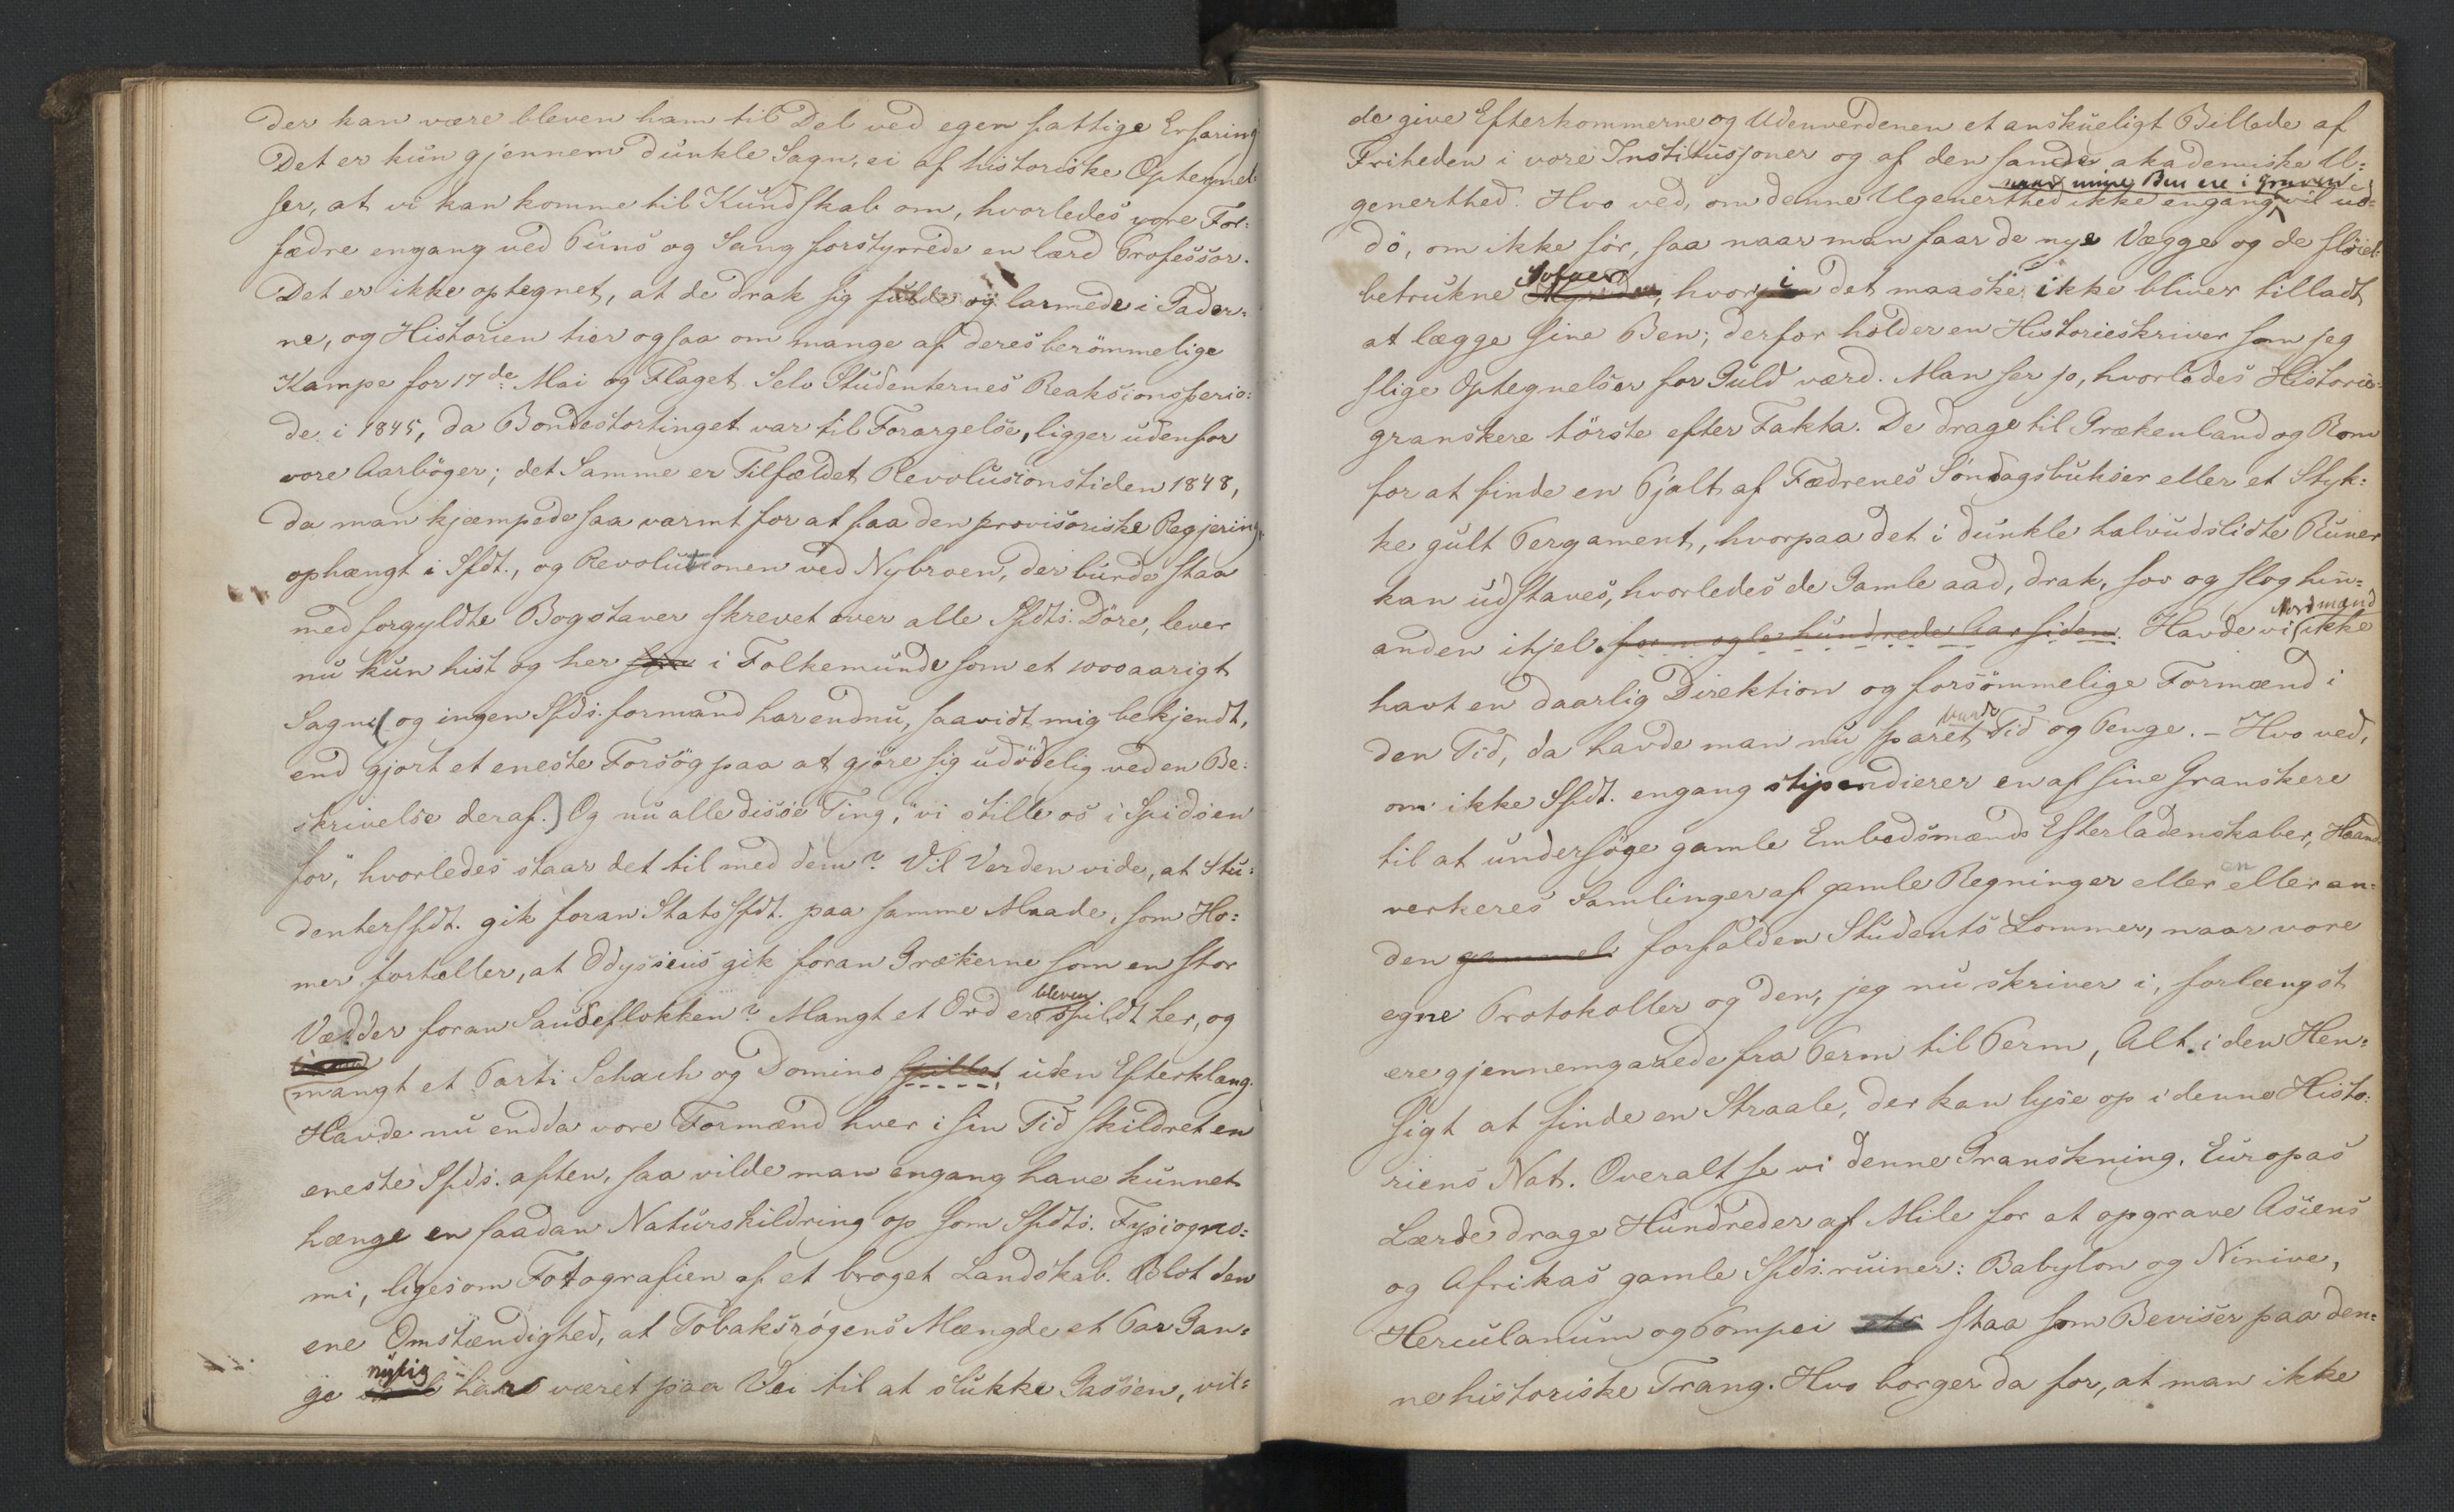 der kan være bleven ham til Del ved egen fattige Erfaring
Det er kun gjennem dunkle Sagn, ei af historiske Optegnel-
ser, at vi kan komme til Kundskab om, hvorledes vore For-
fædre engang ved Puns og Sang forstyrrede en lærd Professor.
Det er ikke optegnet, at de drak sig fulde og larmede i Gader-
ne, og Historien tier ogsaa om mange af deres berömmelige
Kampe for 17de Mai og Flaget. Selv Studenternes Reaksionsperio-
de i 1845, da Bondestortinget var til Forargelse, ligger udenfor
vore Aarböger; det Samme er Tilfældet Revolusionstiden 1848,
da man kjæmpede saa varmt for at faa den provisoriske Regjering
ophængt i Sfdt., og Revolutionen ved Nybroen, der burde staa
med forgyldte Bogstaver skrevet over alle Sfdts. Döre, lever
nu kun hist og her i Folkemunde som et 1000aarigt
Sagn (og ingen Sfds. formand har endnu, saavidt mig bekjendt,
end gjort et eneste Forsög paa at gjöre sig udödelig ved en Be-
skrivelse deraf.) Og nu alle disse Ting, "vi stille os i Spidsen
for," hvorledes staar det til med dem? Vil Verden vide, at Stu-
dentersfdt. gik foran Statssfdt. paa samme Maade, som Ho-
mer fortæller, at Odysseus gik foran Grækerne som en stor
Vædder foran Saueflokken? Mangt et Ord er bleven spildt her, og
mangt et Parti Schach og Domino spillet uden Efterklang.
Havde nu endda vore Formænd hver i sin Tid skildret en
eneste Sfds. aften, saa vilde man engang have kunnet
hænge en saadan Naturskildring op som Sfdts. Fysiogno-
mi, ligesom Fotografien af et broget Landskab. Blot den
ene Omstændighed, at Tobaksrögens Mængde et Par Gan-
ge nylig har været paa Vei til at slukke Gassen, vil-
de give Efterkommerne og Udenverdenen et anskueligt Billede af
Friheden i vore Institusjoner og af den sande akademiske U-
naar mine Ben ere i Graven
generthed. Hvo ved, om denne Ugenerthed ikke engang vil ud-
dö, om ikke för, saa naar man faar de nye Vægge og de flöiel-
betrukne Sofaer, hvori det maaske ikke bliver tilladt
at lægge sine Ben; derfor holder en Historieskriver som jeg
slige Optegnelser for Guld værd. Man ser jo, hvorledes Historie-
granskere törste efter Fakta. De drage til Grækenland og Rom
for at finde en Pjalt af Fædrenes Söndagsbukser eller et Styk-
ke gult Pergament, hvorpaa det i dunkle halvudslidte Runer
kan udstaves, hvorledes de Gamle aad, drak, sov og slog hin-
anden ihjel for nogle hundrede Aar siden. Havde vi Nordmænd ikke
havt en daarlig Direktion og forsömmelige Formænd i
den Tid, da havde man nu sparet baade Tid og Penge. - Hvo ved,
om ikke Sfdt. engang stipendierer en af sine Granskere
til at undersöge gamle Embedsmænds Efterladenskaber, Haand-
verkeres Samlinger af gamle Regninger eller en eller an-
den gammel forfalden Students Lommer, naar vore
egne Protokoller og den, jeg nu skriver i, forlængst
ere gjennemgaaede fra Perm til Perm, Alt i den Hen-
sigt at finde en Straale, der kan lyse op i denne Histo-
riens Nat. Overalt se vi denne Granskning. Europas
Lærde drage Hundreder af Mile for at opgrave Asiens
og Afrikas gamle Sfds. ruiner: Babylon og Ninive,
Herculanum og Pompei staa som Beviser paa den-
ne historiske Trang. Hvo borger da for, at man ikke